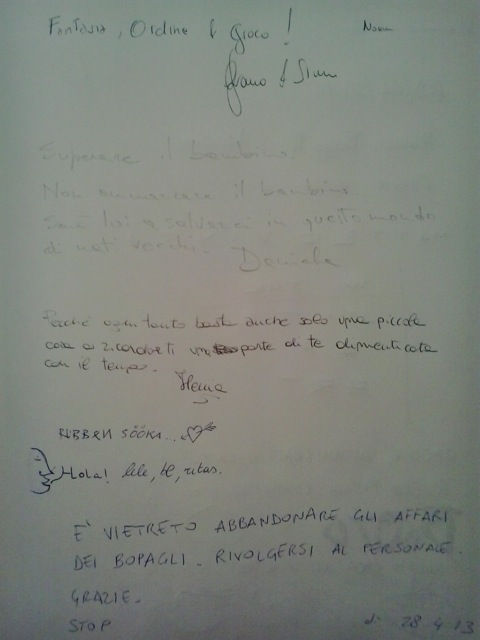 Fantasia, Ordine & Gioco!
Superare il bambino.
Non ammazzare il bambino
Sarà lui a salvarci in questo mondo
di nati vecchi. Daniela
Perché ogni tanto basta anche solo una piccola
cosa a ricordarti una parte di te dimenticata
con il tempo.
SÖÖKA...
Hola! lele,
E' VIETRETO ABBANDONARE GLI AFFARI
DEI BOPAGLI. RIVOLGERSI AL PERSONALE.
GRAZIE.
STOP
di 28 4 13